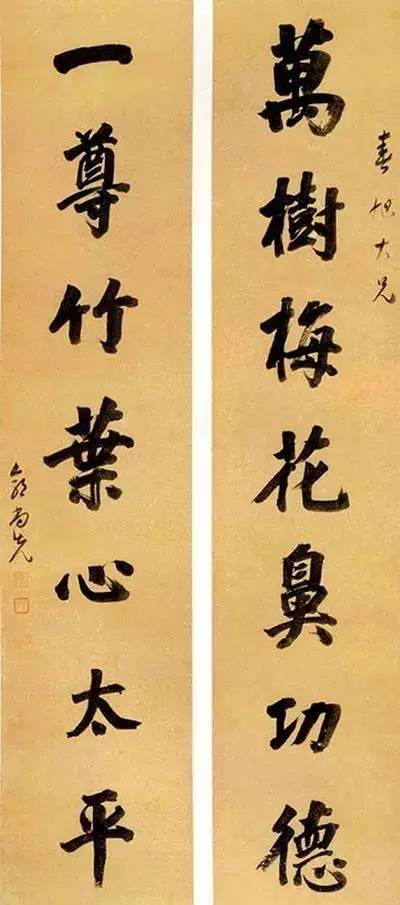 春旭大兄
萬樹梅花鼻功德
一尊竹葉心太平
郭尚先